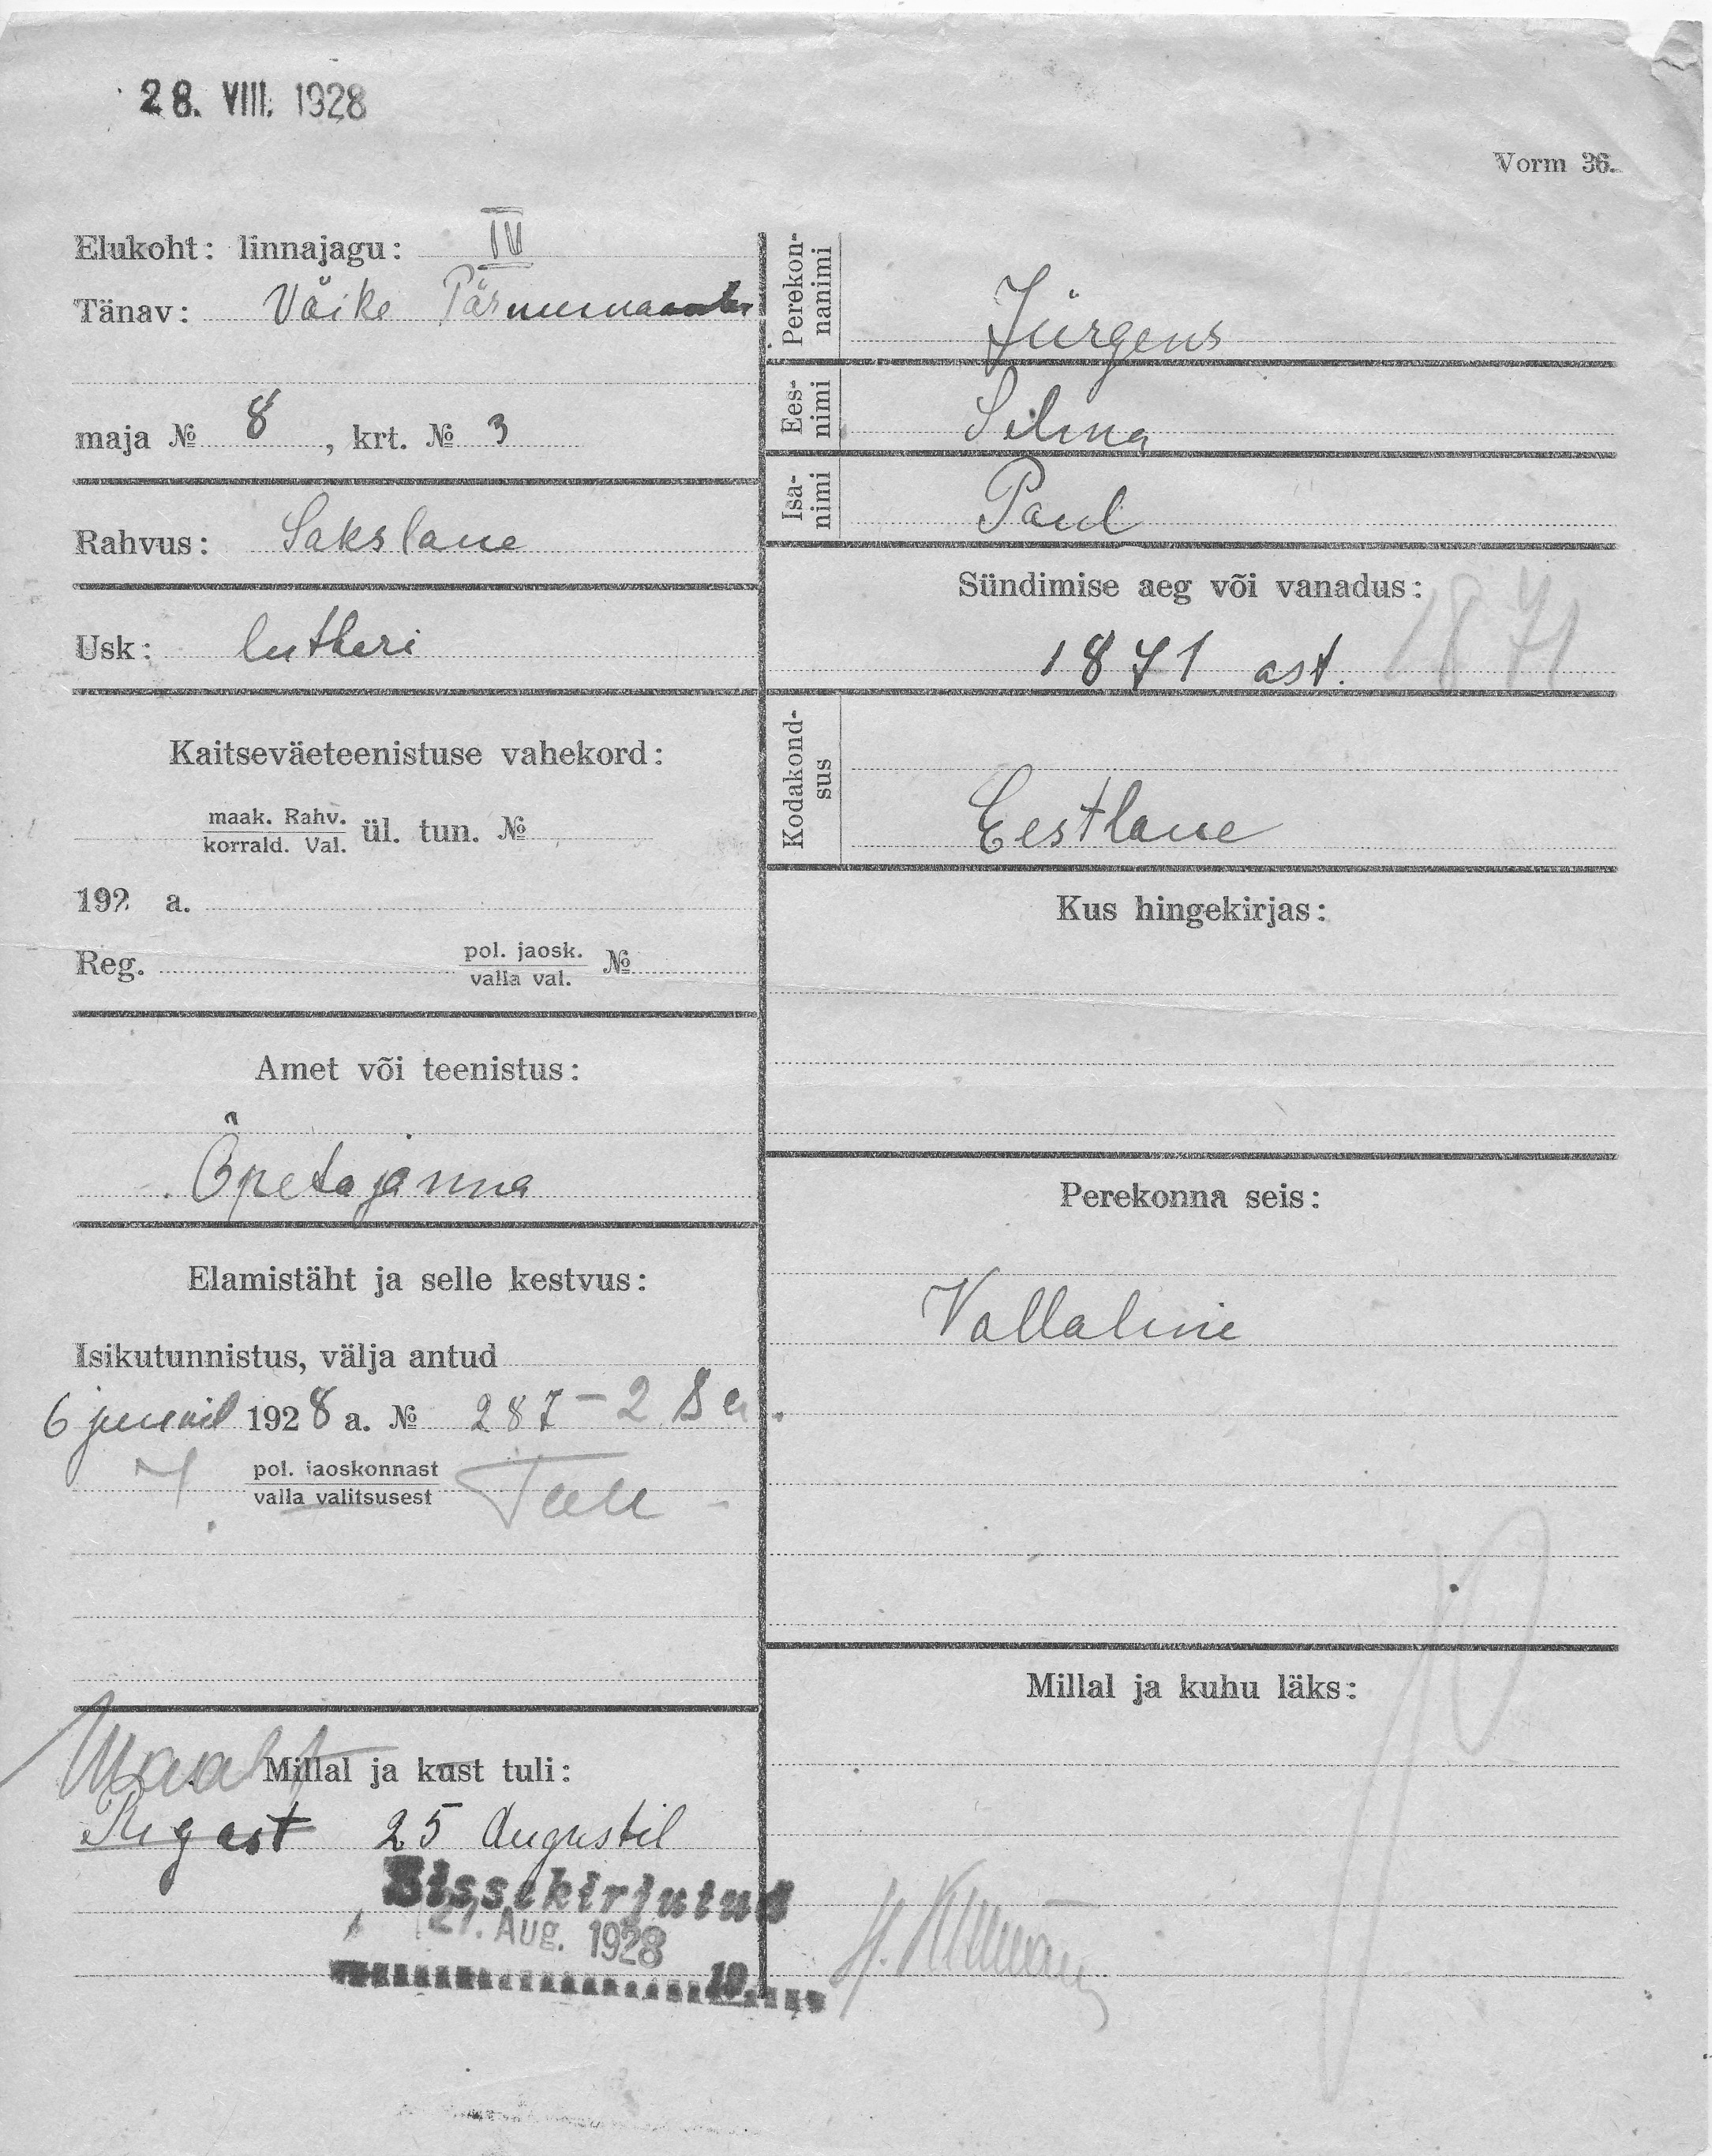 28. VIII. 1928
Vorm 36.
Elukoht: linnajagu: IV
Tänav: Väike Pärnumaantee
maja № 8, krt. № 3
Rahvus: Sakslane
Usk: lutheri
Kaitseväeteenistuse vahekord:
maak. Rahv.
korrald. Val. ül. tun. №
192 a.
Reg. pol. jaosk.
valla val. №
Amet või teenistus:
Õpetajanna
Elamistäht ja selle kestvus:
Isikutunnistus, välja antud
6 juunil 1928 a. № 287-2
pol. jaoskonnast
valla valitsusest
Maalt
Millal ja kust tuli:
Rigast 25 Augustil
Sissekirjutud
27. Aug. 1928
19
Perekonnanimi
Jürgens
Eesnimi
Selma
Isanimi
Paul
Sündimise aeg või vanadus:
1871 ast. 1871
Kodakondsus
Eestlane
Kus hingekirjas:
Perekonna seis:
Vallaline
Millal ja kuhu läks: